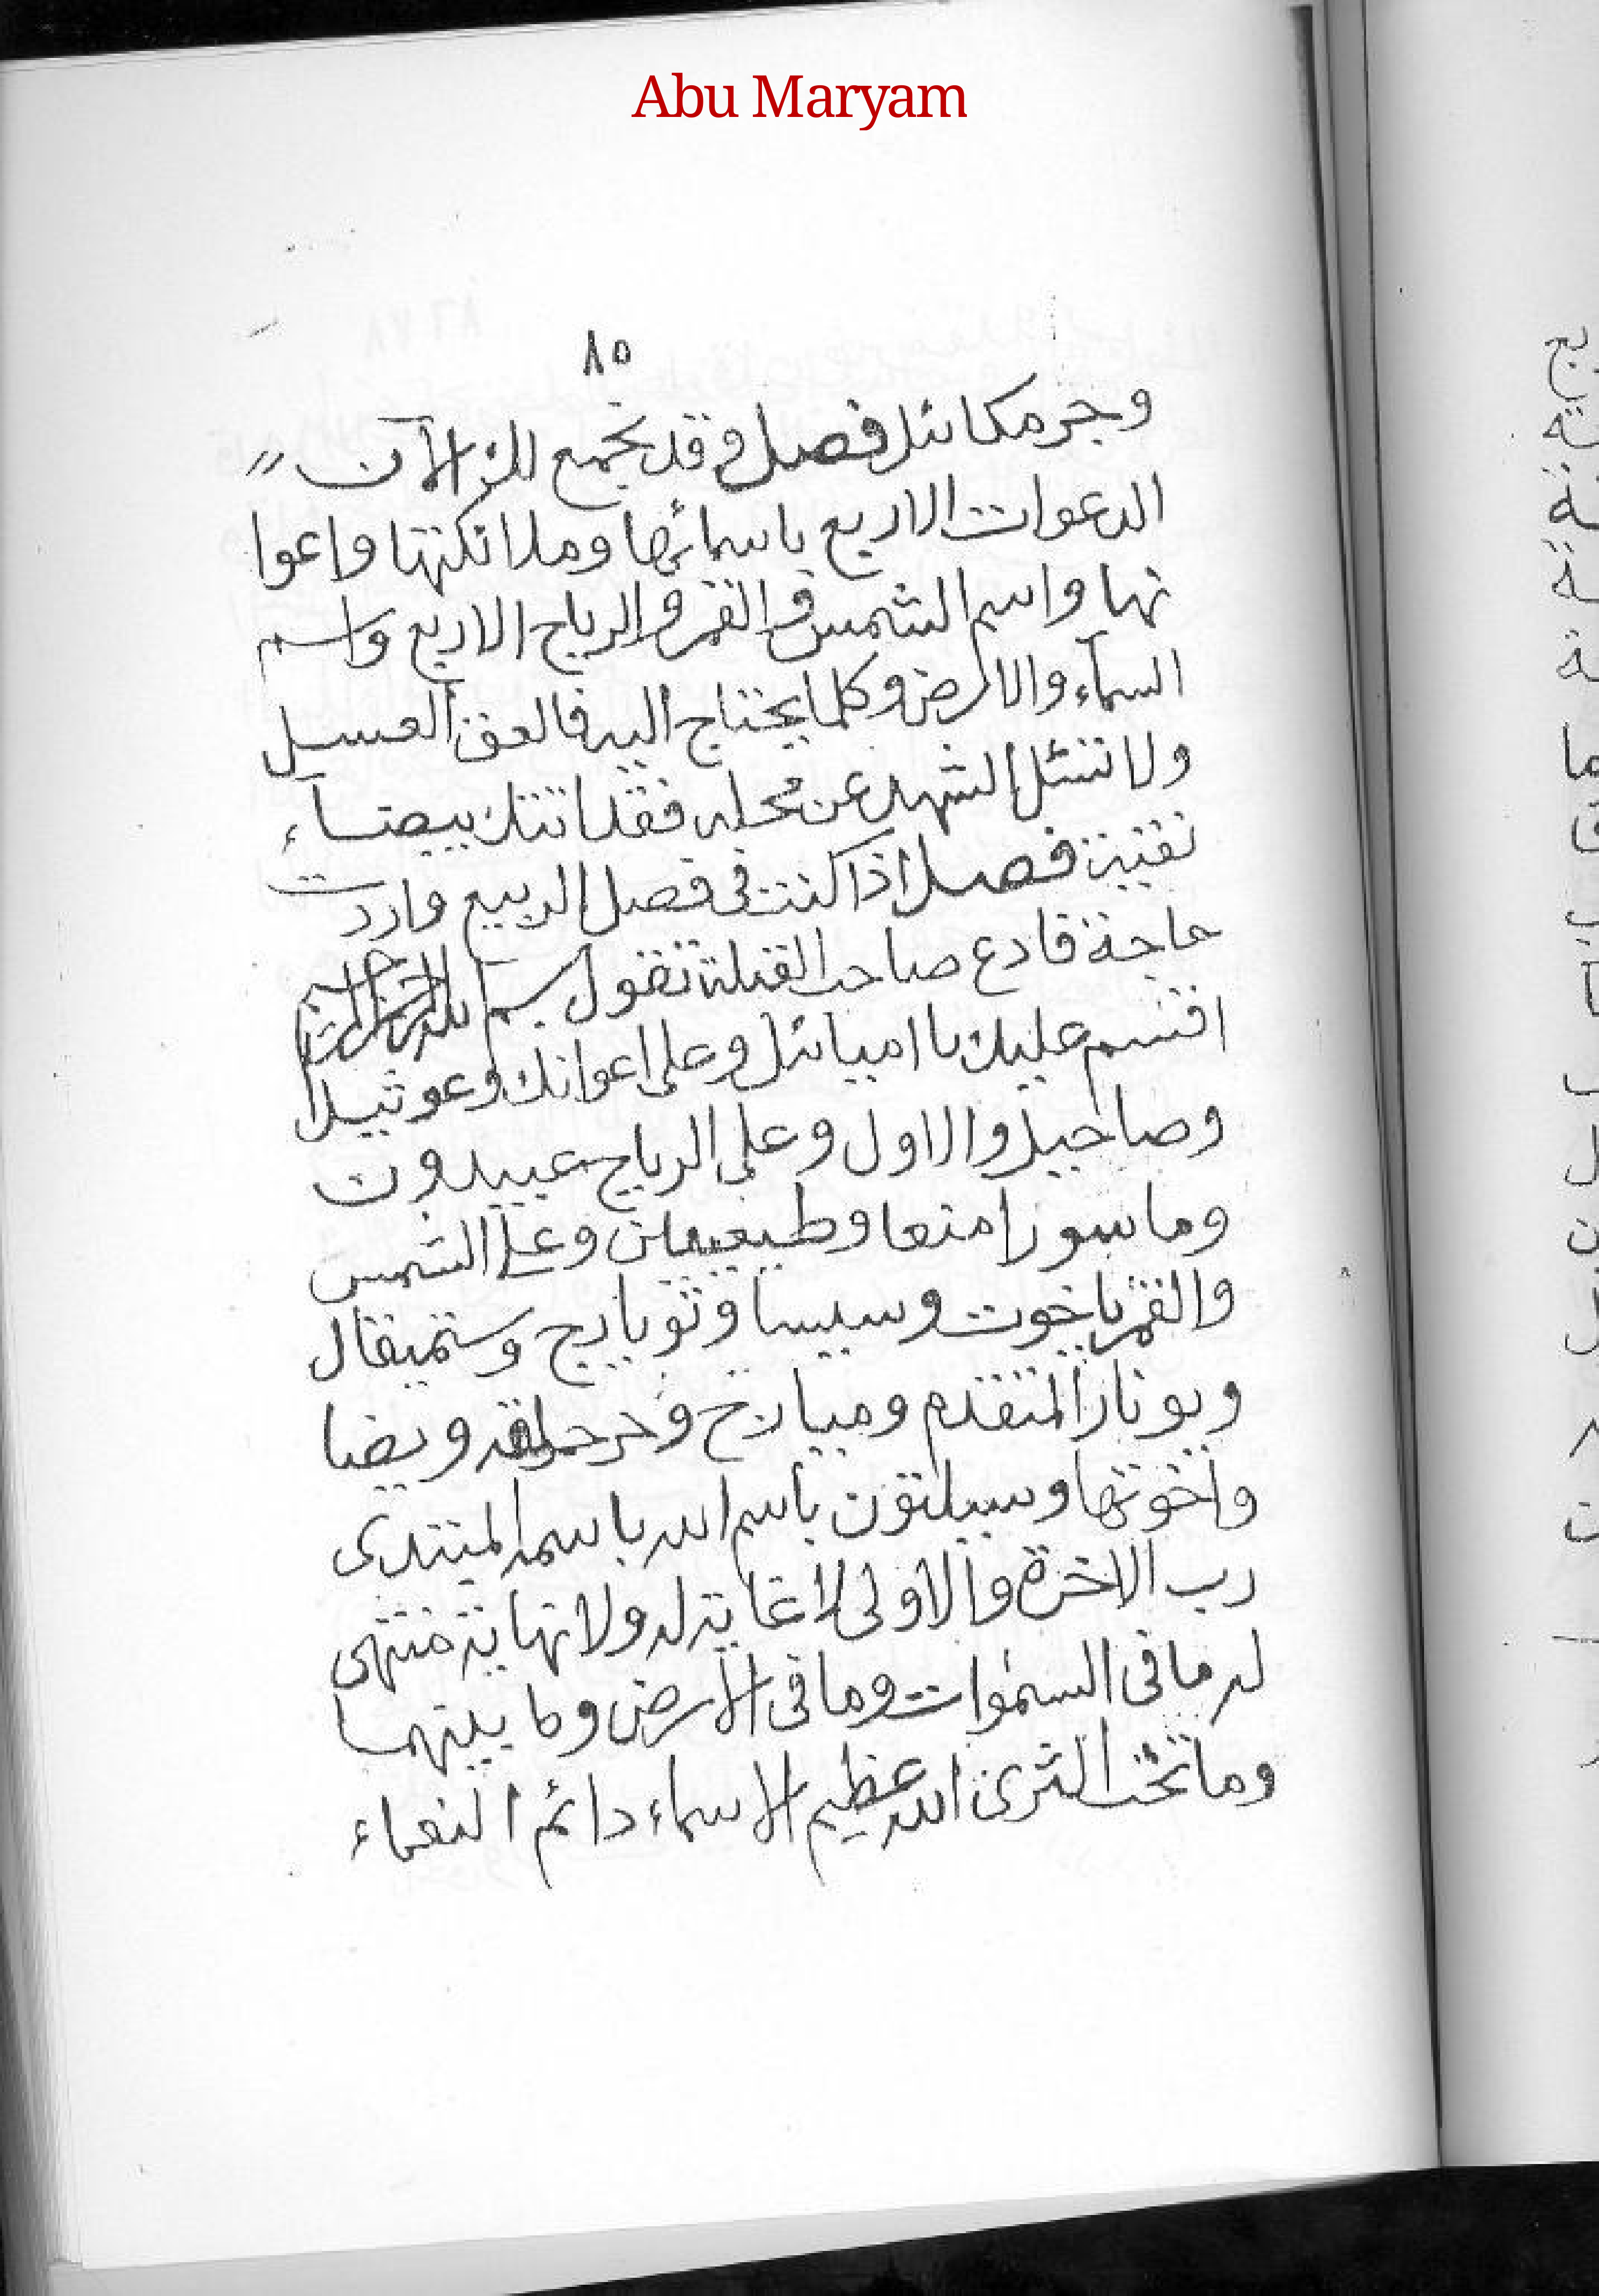 Abu Maryam
٨٥
وجرمكائل فصل وقد نجمع لك الآن
الدعوات الاربع باسمائها وملائكتها واعوا
نها واسم الشمس والقمر والرياح الاربع واسم
السمآء والارض وكلما يحتاج اليه فالعق العسل
ولا تسئل الشهد عن محله فقد اتتك بيضآء
نقية فصل اذا كنت فى فصل الربيع واردت
حاجة فادع صاحب القبلة تقول بسم الله الرحمن الرحيم
اقسم عليك يا اميائل وعلى اعوانك
والاول وعلى الرياح
وما سورا وعلى الشمس
والقمر ياخوت وسيسا
المتقدم
واخوتها باسم الله باسمه المبتدى
رب الاخرة والاولى لا غاية له ولا نهاية منتهى
له ما فى السموات وما فى الارض وما بينهما
وما تحت الثرى الله عظيم الاسماء دائم النعماء